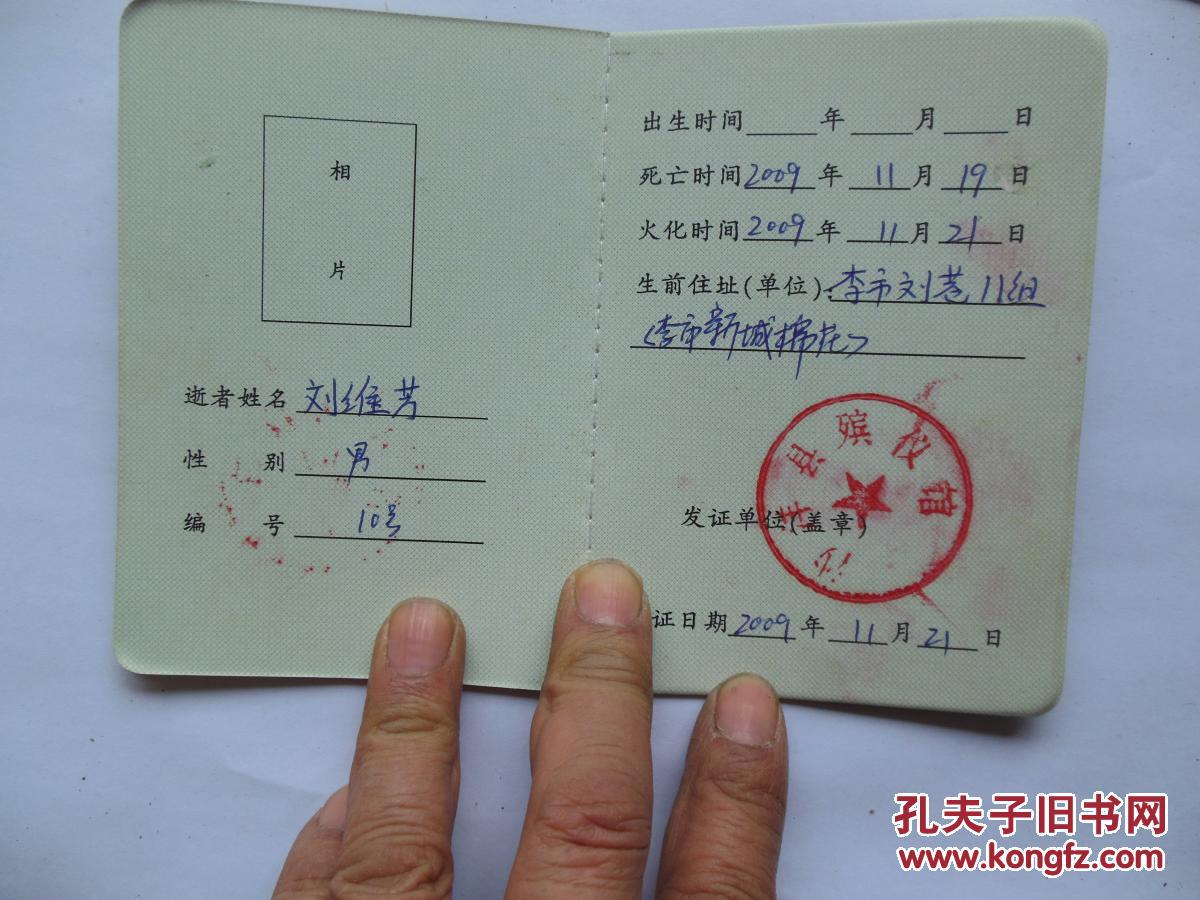 相
片
逝者姓名 刘维芳
性 别 男
编 号 10号
出生时间 年 月 日
死亡时间 2009 年 11 月 19 日
火化时间 2009 年 11 月 21 日
生前住址(单位): 李市刘巷11组
(李市新城棉花)
沙洋县殡仪馆
发证单位(盖章)
证日期 2009 年 11 月 21 日
孔夫子旧书网
www.kongfz.com